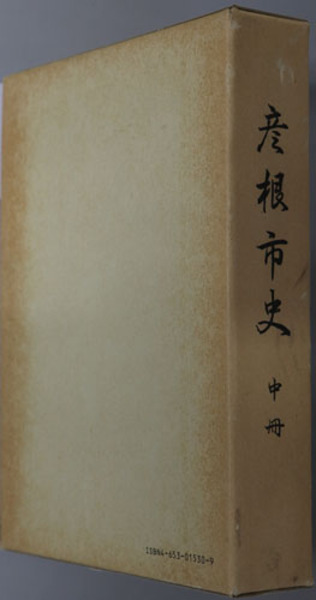 彦根市史
中冊
10864-653-01530-9